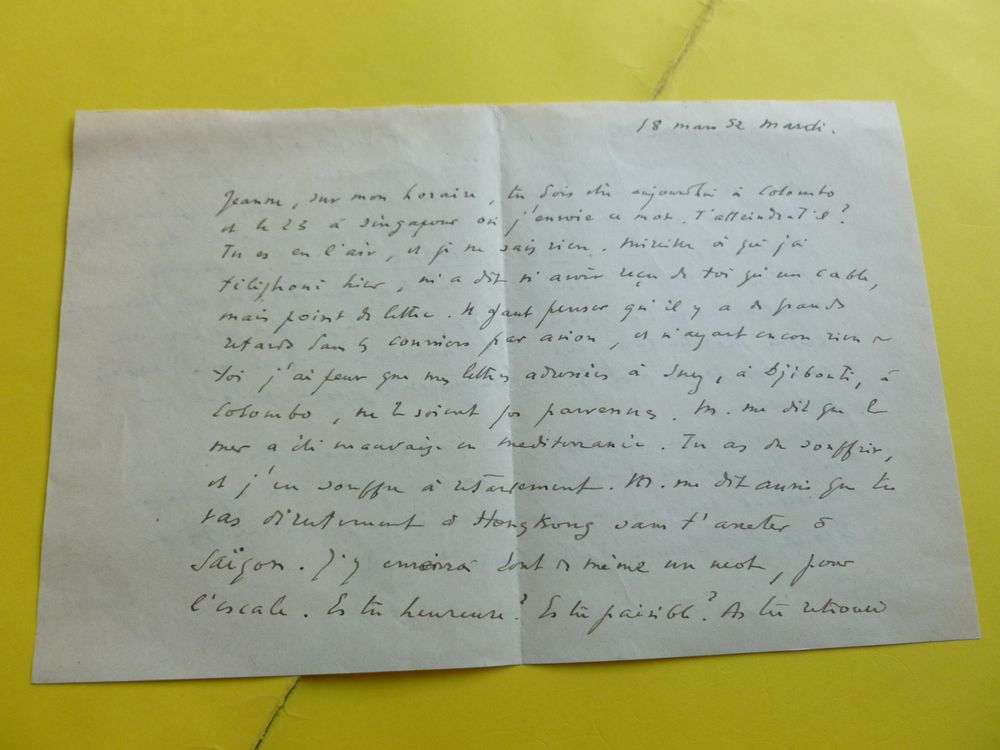 18 mars 52 mardi.
Jeanne, sur mon horaire, tu dois être aujourd'hui à Colombo
et le 23 à Singapour où j'envoie ce mot. T'atteindra t'il?
Tu es en l'air, et je ne sais rien. Mireille à qui j'ai
téléphoné hier, m'a dit n'avoir reçu de toi qu'un cable,
mais point de lettre. Il faut penser qu'il y a de grands
retards dans les courriers par avion, et n'ayant encore rien de
toi j'ai peur que mes lettres adressées à Suez, à Djibouti, à
Colombo, ne te soient pas parvenues. M. me dit que la
mer a été mauvaise en méditerranée. Tu as du souffrir,
et j'en souffre à retardement. M. me dit aussi que tu
vas directement à Hong Kong sans t'arreter à
Saïgon. J'y enverrai tout de même un mot, pour
l'escale. Es tu heureuse? Es tu paisible? As tu retrouvé